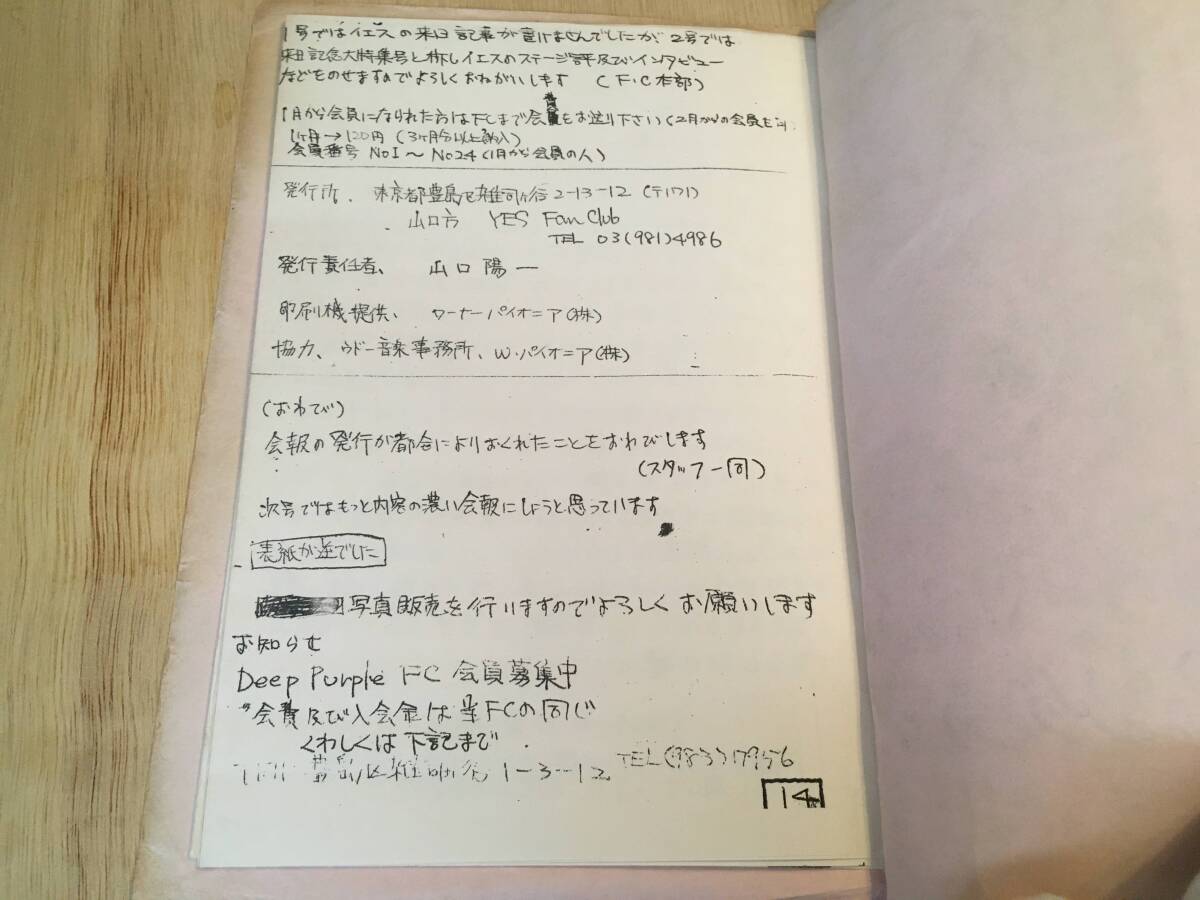 1号ではイエスの来日記事が書けませんでしたが、2号では
来日記念大特集号と称しイエスのステージ評及びインタビュー
などをのせますのでよろしくおねがいします (F・C本部)
1月から会員になられた方は下Cまで会費をお送り下さい(2月からの会員も
1ヶ月→120円(3ヶ月分以上納入)
会員番号 No1〜No24(1月から会員の人)
発行所、東京都豊島区雑司ヶ谷2-13-12(〒171)
山口方 YES Fan Club
TEL 03(981)4986
発行責任者、山口陽一
印刷機提供、ワーナーパイオニア(株)
協力、ウドー音楽事務所、W・パイオニア(株)
(おわび)
会報の発行が都合によりおくれたことをおわびします
(スタッフ一同)
次号ではもっと内容の濃い会報にしようと思っています
表紙が逆でした
写真販売を行いますのでよろしくお願いします
お知らせ
Deep Purple FC 会員募集中
会費及び入会金は当FCの同じ
くわしくは下記まで
1-3-12 TEL(983)7956
14